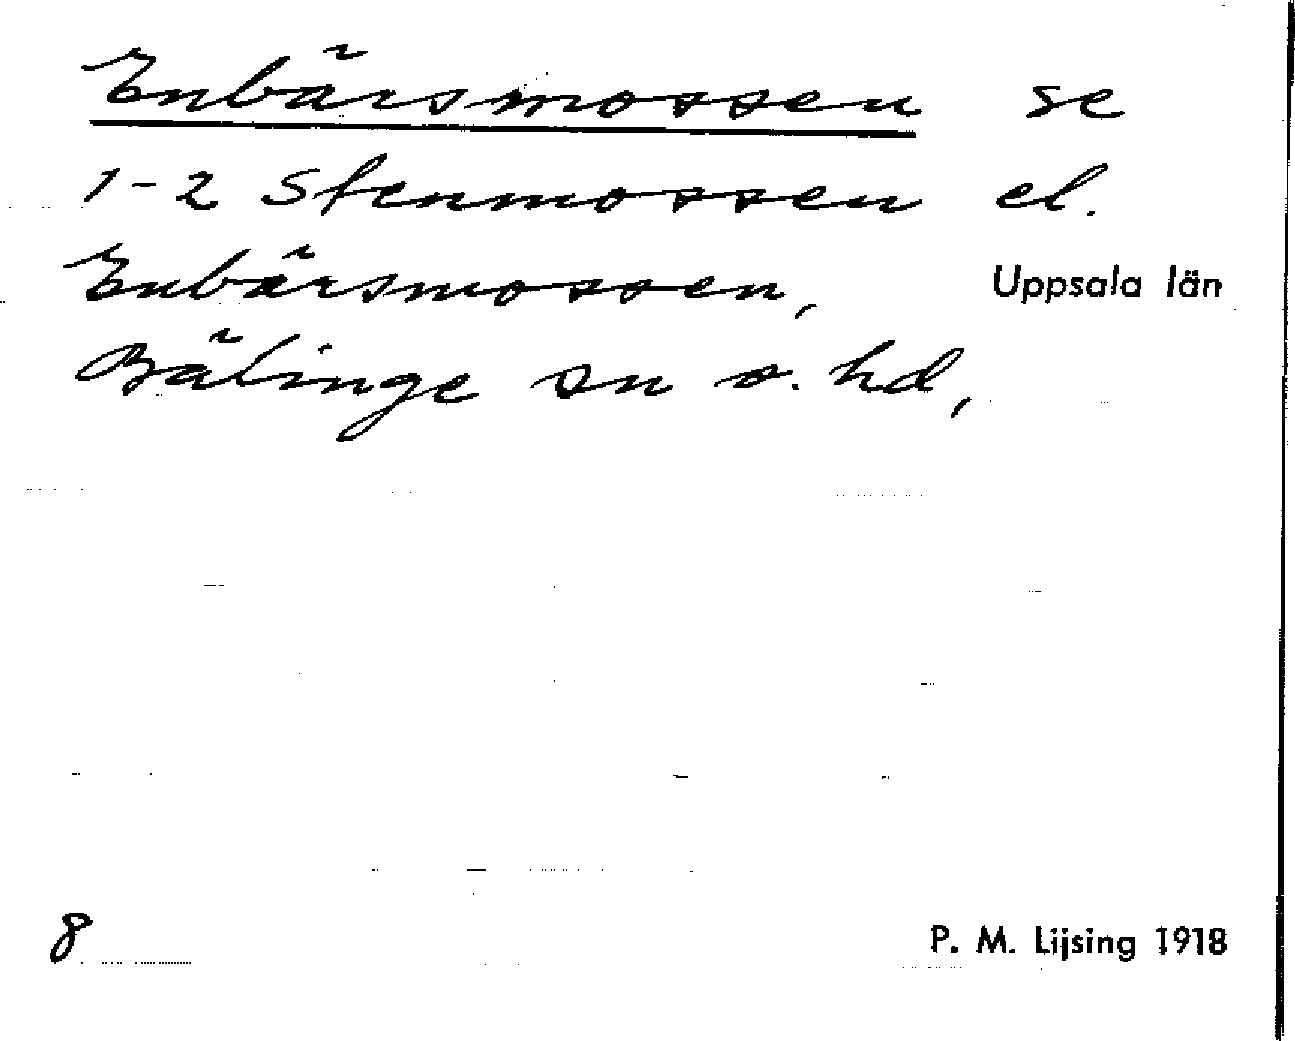 Enbärsmossen se
1-2 Stenmossen el.
Enbärsmossen,
Uppsala län
Bälinge sn o. hd,
8
P. M. Lijsing 1918